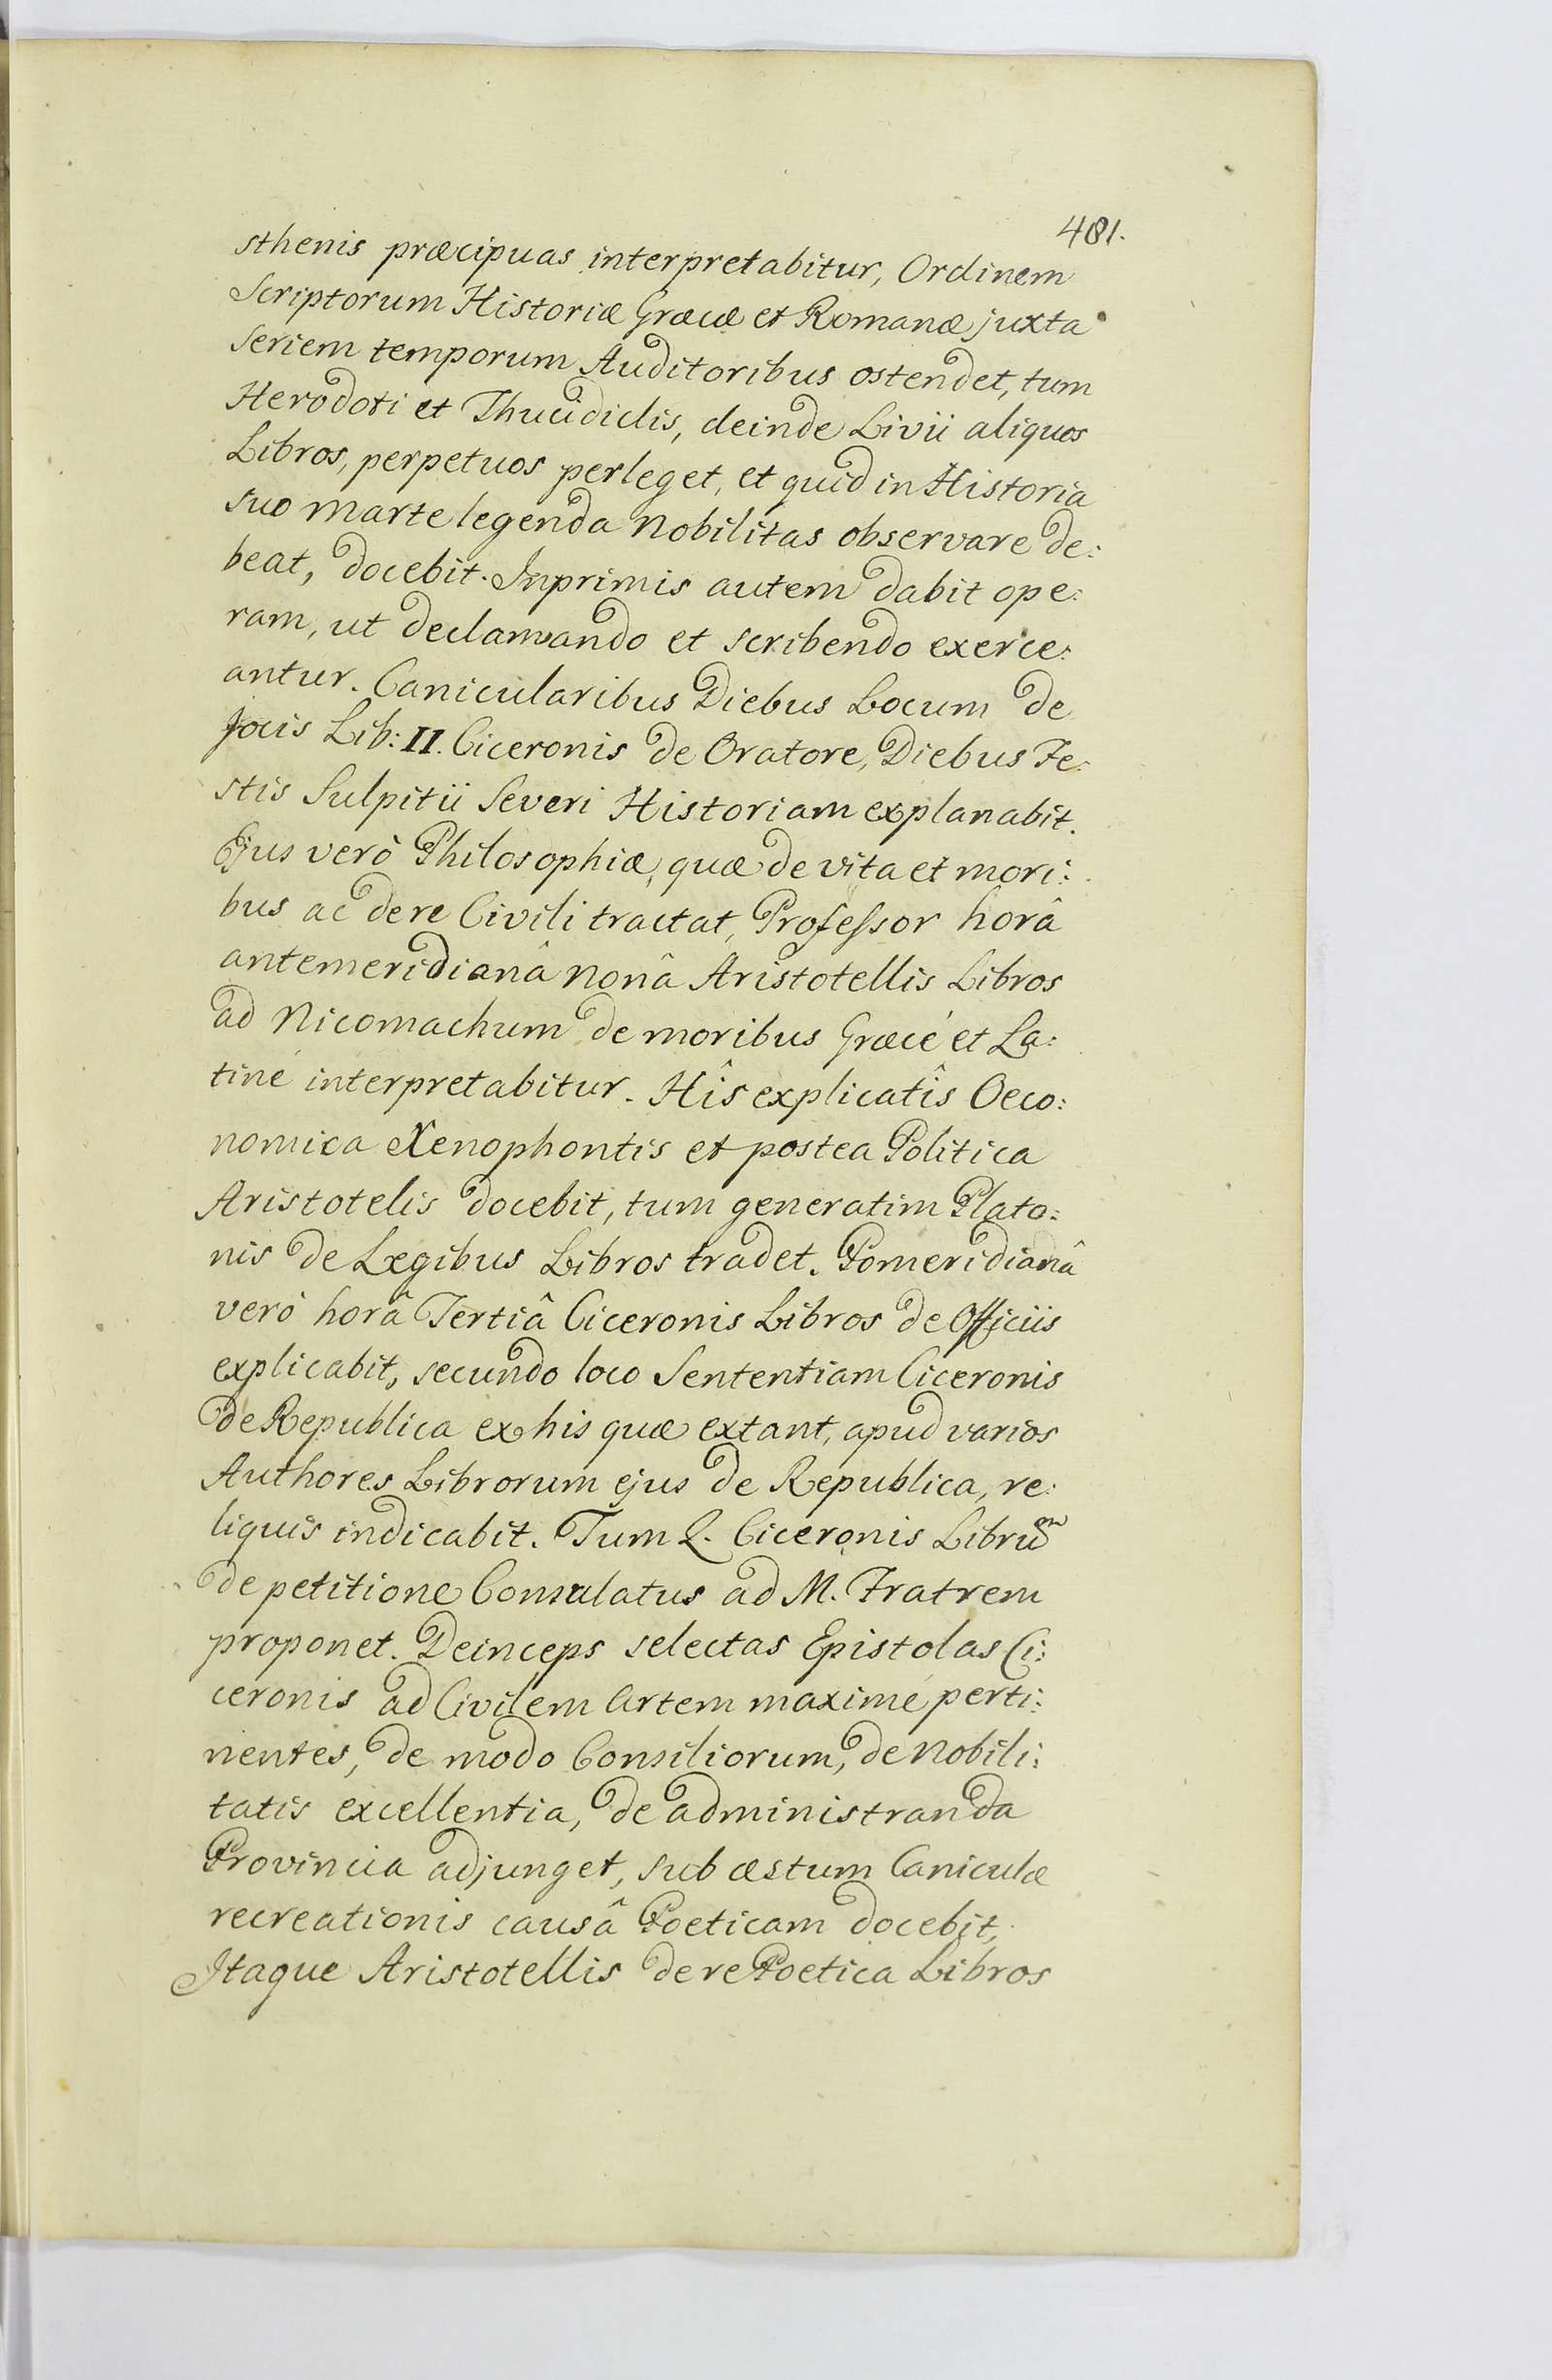 481.
sthenis præcipuas interpretabitur, Ordinem
Scriptorum Historiæ Græcæ et Romanæ juxta
seriem temporum Auditoribus ostendet, tum
Herodoti et Thucididis, deinde Livii aliquos
Libros, perpetuos perleget, et quid in Historia
suo Marte legenda Nobilitas observare de:
beat, docebit. Inprimis autem dabit ope:
ram, ut declamando et scribendo exerce:
antur. Canicularibus Diebus Locum de
Jocis Lib: II. Ciceronis de Oratore, Diebus Fe:
stis Sulpitii Severi Historiam explanabit.
Ejus verò Philosophiæ, quæ de vita et mori:
bus ac de re Civili tractat, Professor horâ
antemeridianâ nonâ Aristotellis Libros
ad Nicomachum de moribus Græcé et La:
tiné interpretabitur. Hîs explicatîs Oeco:
nomica Xenophontis et postea Politica
Aristotelis docebit, tum generatim Plato:
nis de Legibus Libros tradet. Pomeridianâ
verò horâ Tertiâ Ciceronis Libros de Officiis
explicabit, secundo loco Sententiam Ciceronis
de Republica ex his quæ extant, apud varios
Authores Librorum ejus de Republica, re:
liquis indicabit. Tum Q. Ciceronis Librum
de petitione Consulatus ad M. Fratrem
proponet. Deinceps selectas Epistolas Ci:
ceronis ad Civilem Artem maximé perti:
nentes, de modo Consiliorum, de Nobili:
tatis excellentia, de administranda
Provincia adjunget, sub æstum Caniculæ
recreationis causâ Poeticam docebit,
Itaque Aristotellis de re Poetica Libros